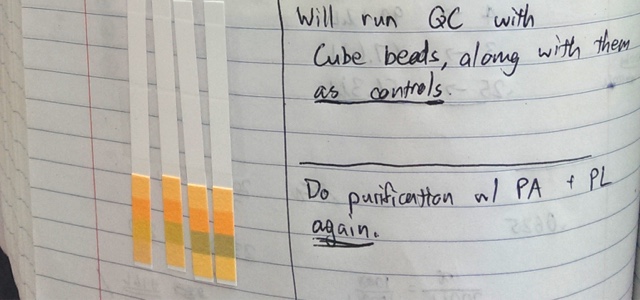 Will run QC with
Cube beads, along with them
as controls.
Do purification w/ PA + PL
again.